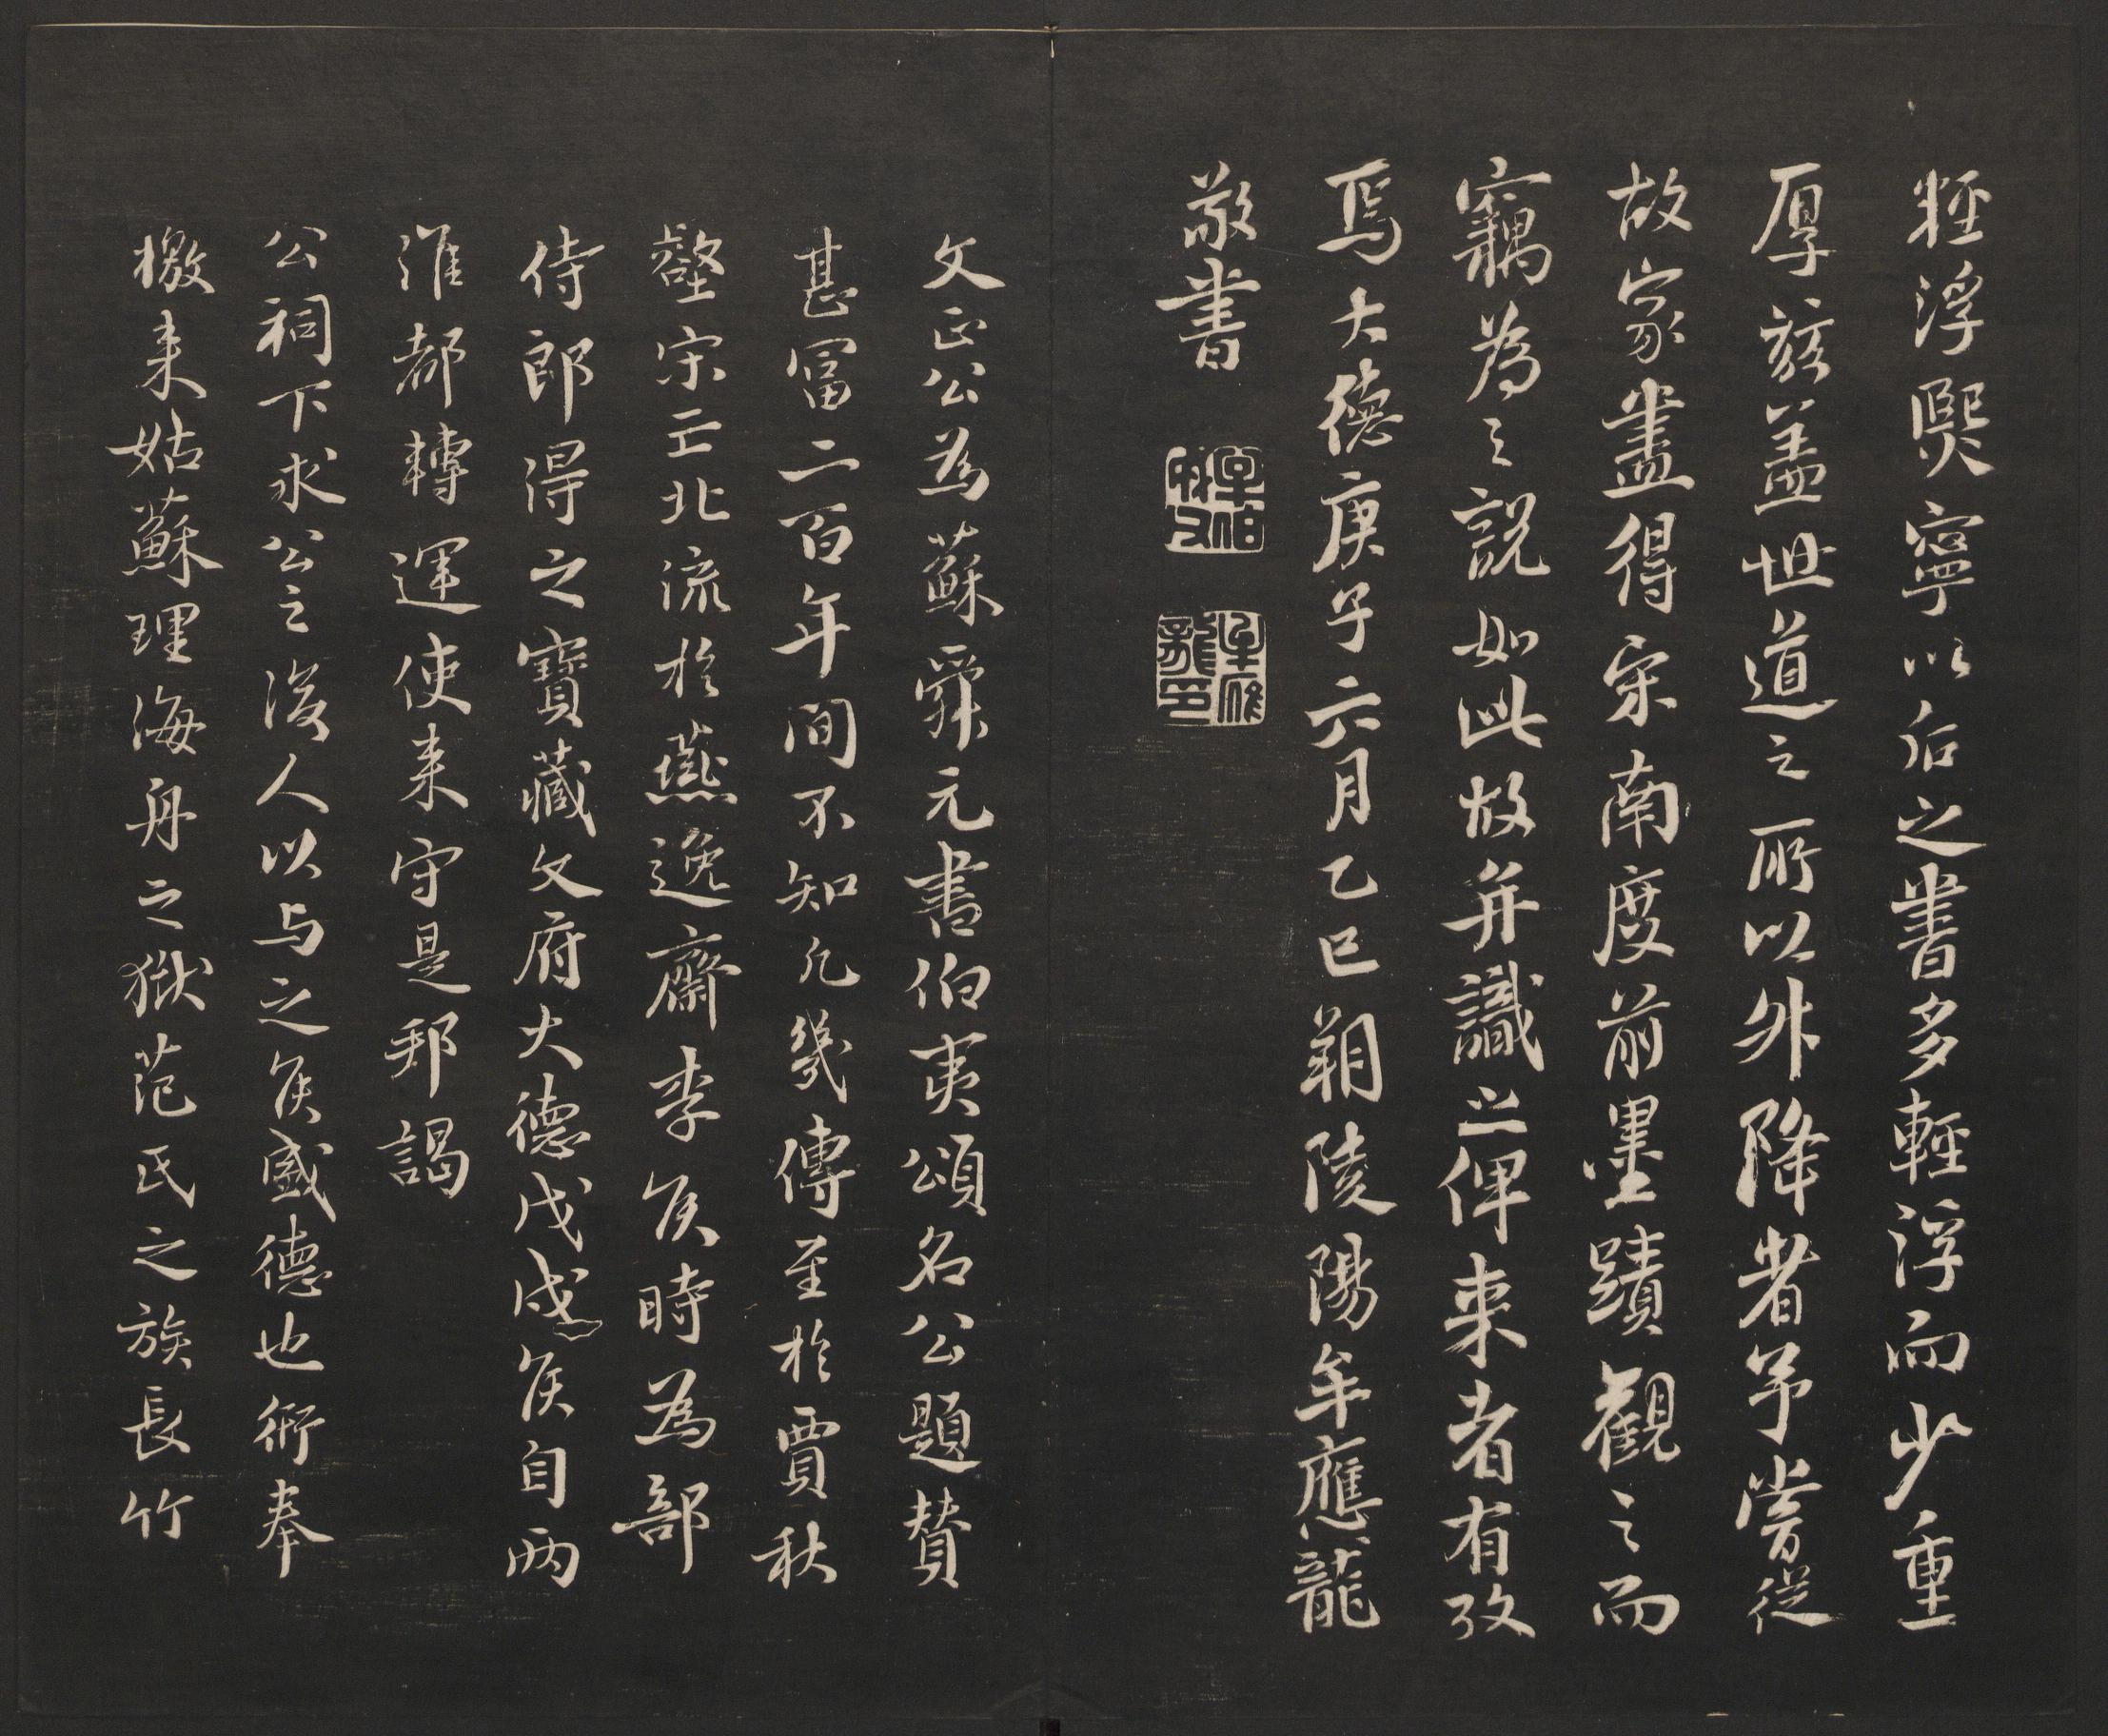 輕浮熙寧以后之書多輕浮而少重
厚茲盖世道之所以升降者予嘗從
故家盡得宋南度前墨蹟觀之而
竊為之説如此故并識之俾来者有攷
焉大德庚子六月乙巳朔陵陽牟應龍
敬書
文正公為蘇舜元書伯夷頌名公題賛
甚富二百年間不知凡幾傳至於賈秋
壑宋亡北流於燕逸齋李侯時為部
侍郎得之寶藏文府大德戊戌侯自两
淮都轉運使来守是邦謁
公祠下求公之後人以与之侯盛德也衍奉
檄来姑蘇理海舟之獄范氏之族長竹